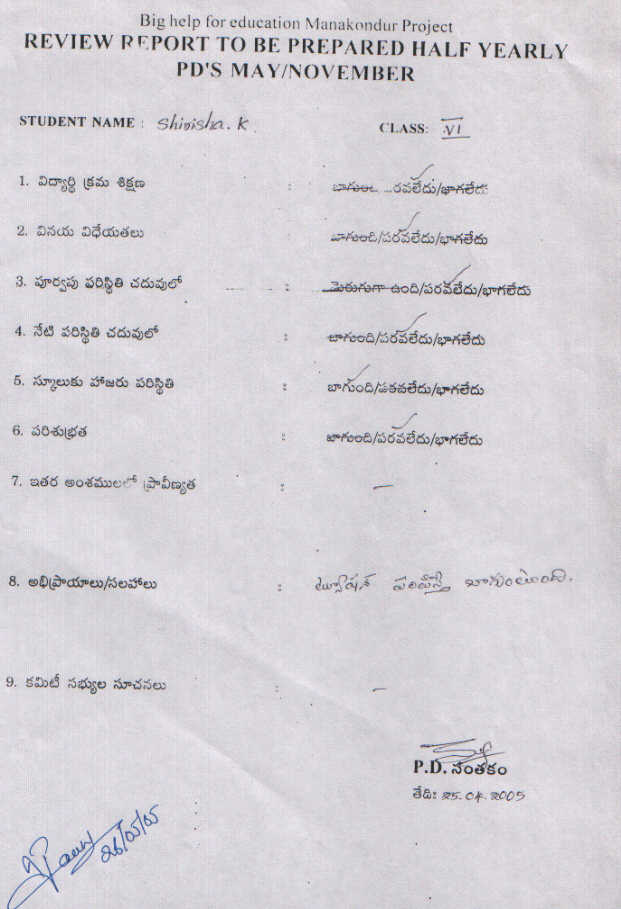 Big help for education Manakondur Project
REVIEW REPORT TO BE PREPARED HALF YEARLY
PD'S MAY/NOVEMBER
STUDENT NAME : Shirisha. K CLASS: VI
1. విద్యార్థి క్రమ శిక్షణ : బాగుంది పరవలేదు/భాగలేదు
2. వినయ విధేయతలు : బాగుంది/పరవలేదు/భాగలేదు
3. పూర్వపు పరిస్థితి చదువులో : మెరుగుగా ఉంది/పరవలేదు/భాగలేదు
4. నేటి పరిస్థితి చదువులో : బాగుంది/పరవలేదు/భాగలేదు
5. స్కూలుకు హాజరు పరిస్థితి : బాగుంది/పకవలేదు/భాగలేదు
6. పరిశుభ్రత : బాగుంది/పరవలేదు/భాగలేదు
7. ఇతర అంశములలో ప్రావీణ్యత : –
8. అభిప్రాయాలు/సలహాలు : ట్యూషన్ బాగుంటుంది.
9. కమిటీ సభ్యుల సూచనలు : –
P.D. సంతకం
తేది: 25.04.2005
26/05/05